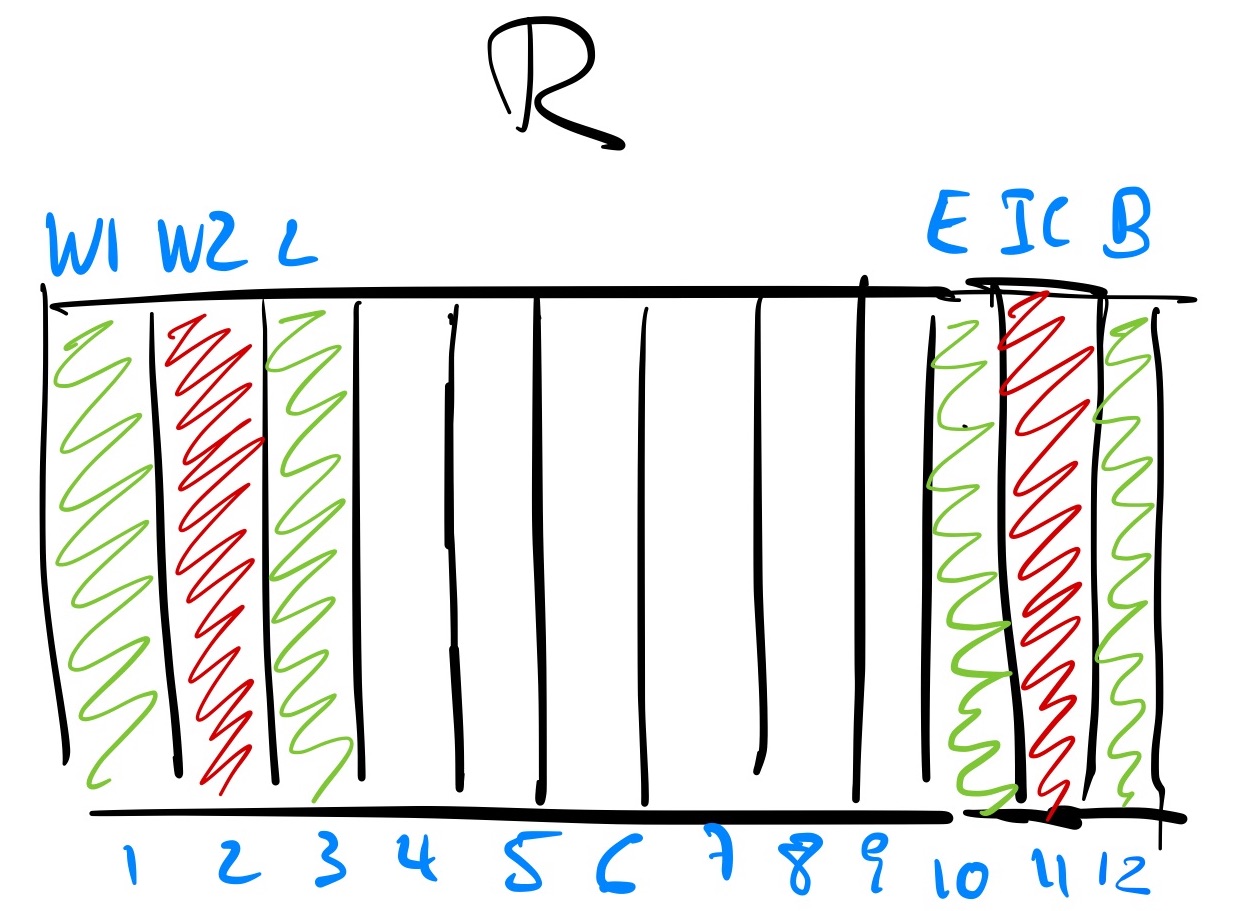 R
W1 W2 L E IC B
1 2 3 4 5 6 7 8 9 10 11 12